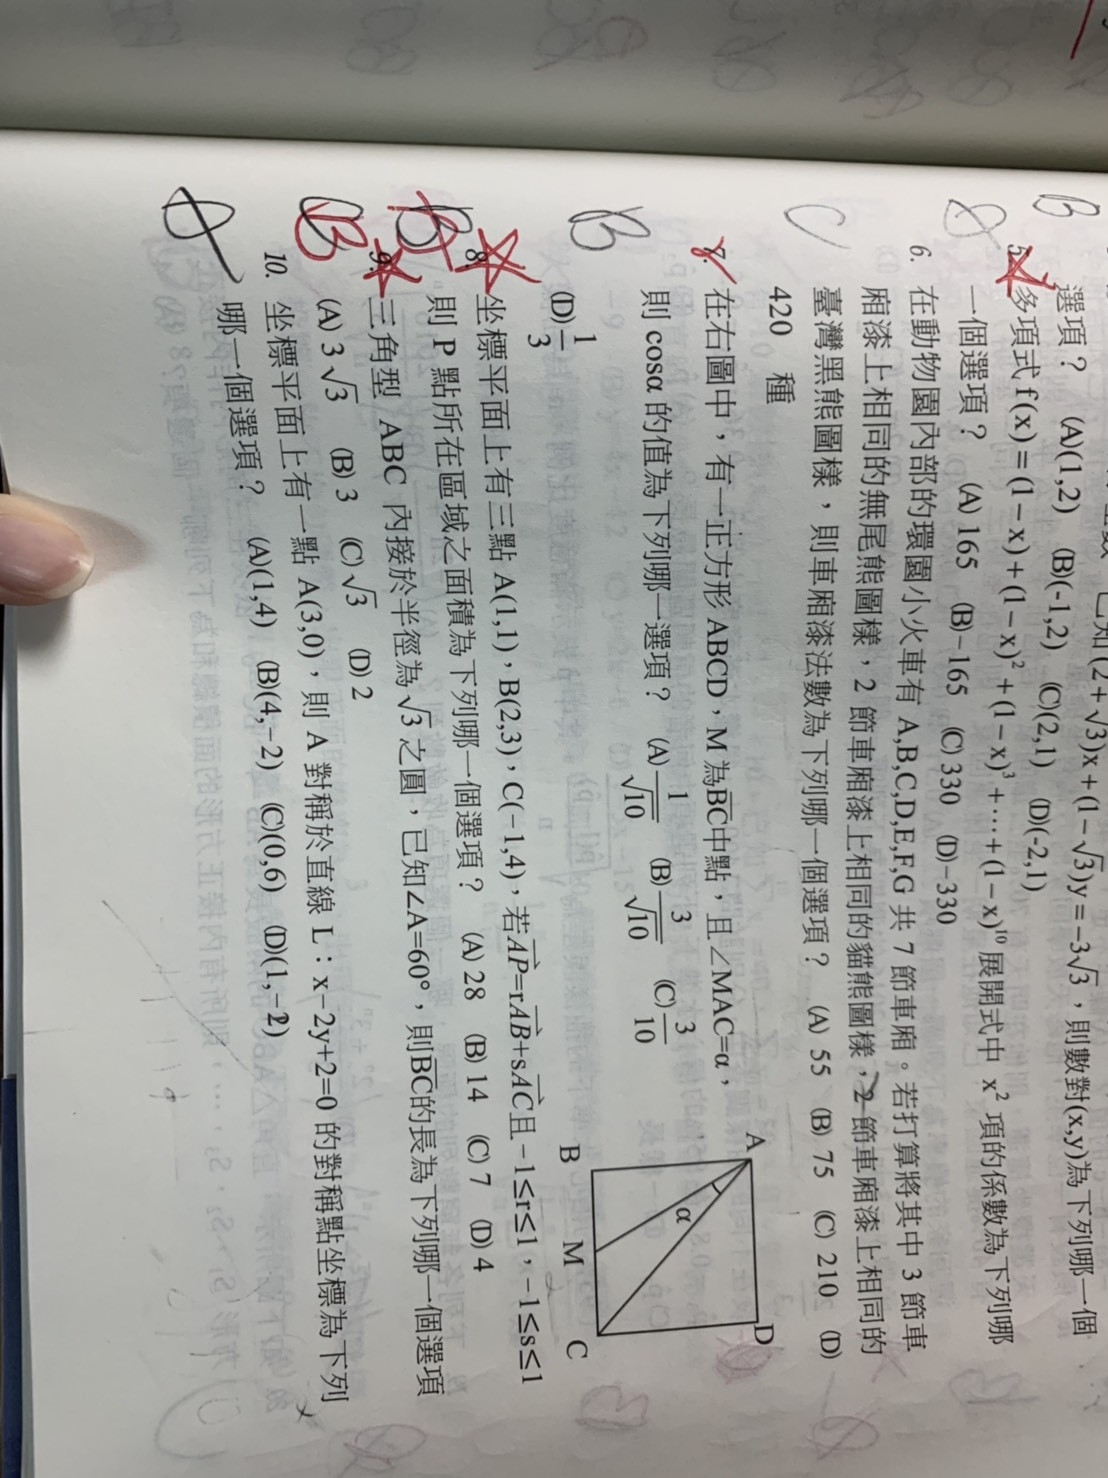 已知(2+√3)x+(1−√3)y=−3√3,則數對(x,y)為下列哪一個
選項? (A)(1,2) (B)(-1,2) (C)(2,1) (D)(-2,1)
B
5. 多項式 f(x)=(1−x)+(1−x)²+(1−x)³+⋯+(1−x)¹⁰ 展開式中 x² 項的係數為下列哪
一個選項? (A) 165 (B)−165 (C) 330 (D)−330
6. 在動物園內部的環園小火車有 A,B,C,D,E,F,G 共 7 節車廂。若打算將其中 3 節車
廂漆上相同的無尾熊圖樣,2 節車廂漆上相同的貓熊圖樣,2 節車廂漆上相同的
臺灣黑熊圖樣,則車廂漆法數為下列哪一個選項? (A) 55 (B) 75 (C) 210 (D)
420 種
C
7. 在右圖中,有一正方形 ABCD,M 為B̅C̅中點,且∠MAC=α,
則 cosα 的值為下列哪一選項? (A) 1/√10 (B) 3/√10 (C) 3/10
(D) 1/3
B
A
D
α
B
M
C
8. 坐標平面上有三點 A(1,1),B(2,3),C(−1,4),若A⃗P⃗=rA⃗B⃗+sA⃗C⃗且−1≤r≤1,−1≤s≤1
則 P 點所在區域之面積為下列哪一個選項? (A) 28 (B) 14 (C) 7 (D) 4
9. 三角型 ABC 內接於半徑為√3之圓,已知∠A=60°,則B̅C̅的長為下列哪一個選項
(A) 3√3 (B) 3 (C)√3 (D) 2
B
10. 坐標平面上有一點 A(3,0),則 A 對稱於直線 L:x−2y+2=0 的對稱點坐標為下列
哪一個選項? (A)(1,4) (B)(4,−2) (C)(0,6) (D)(1,−2)